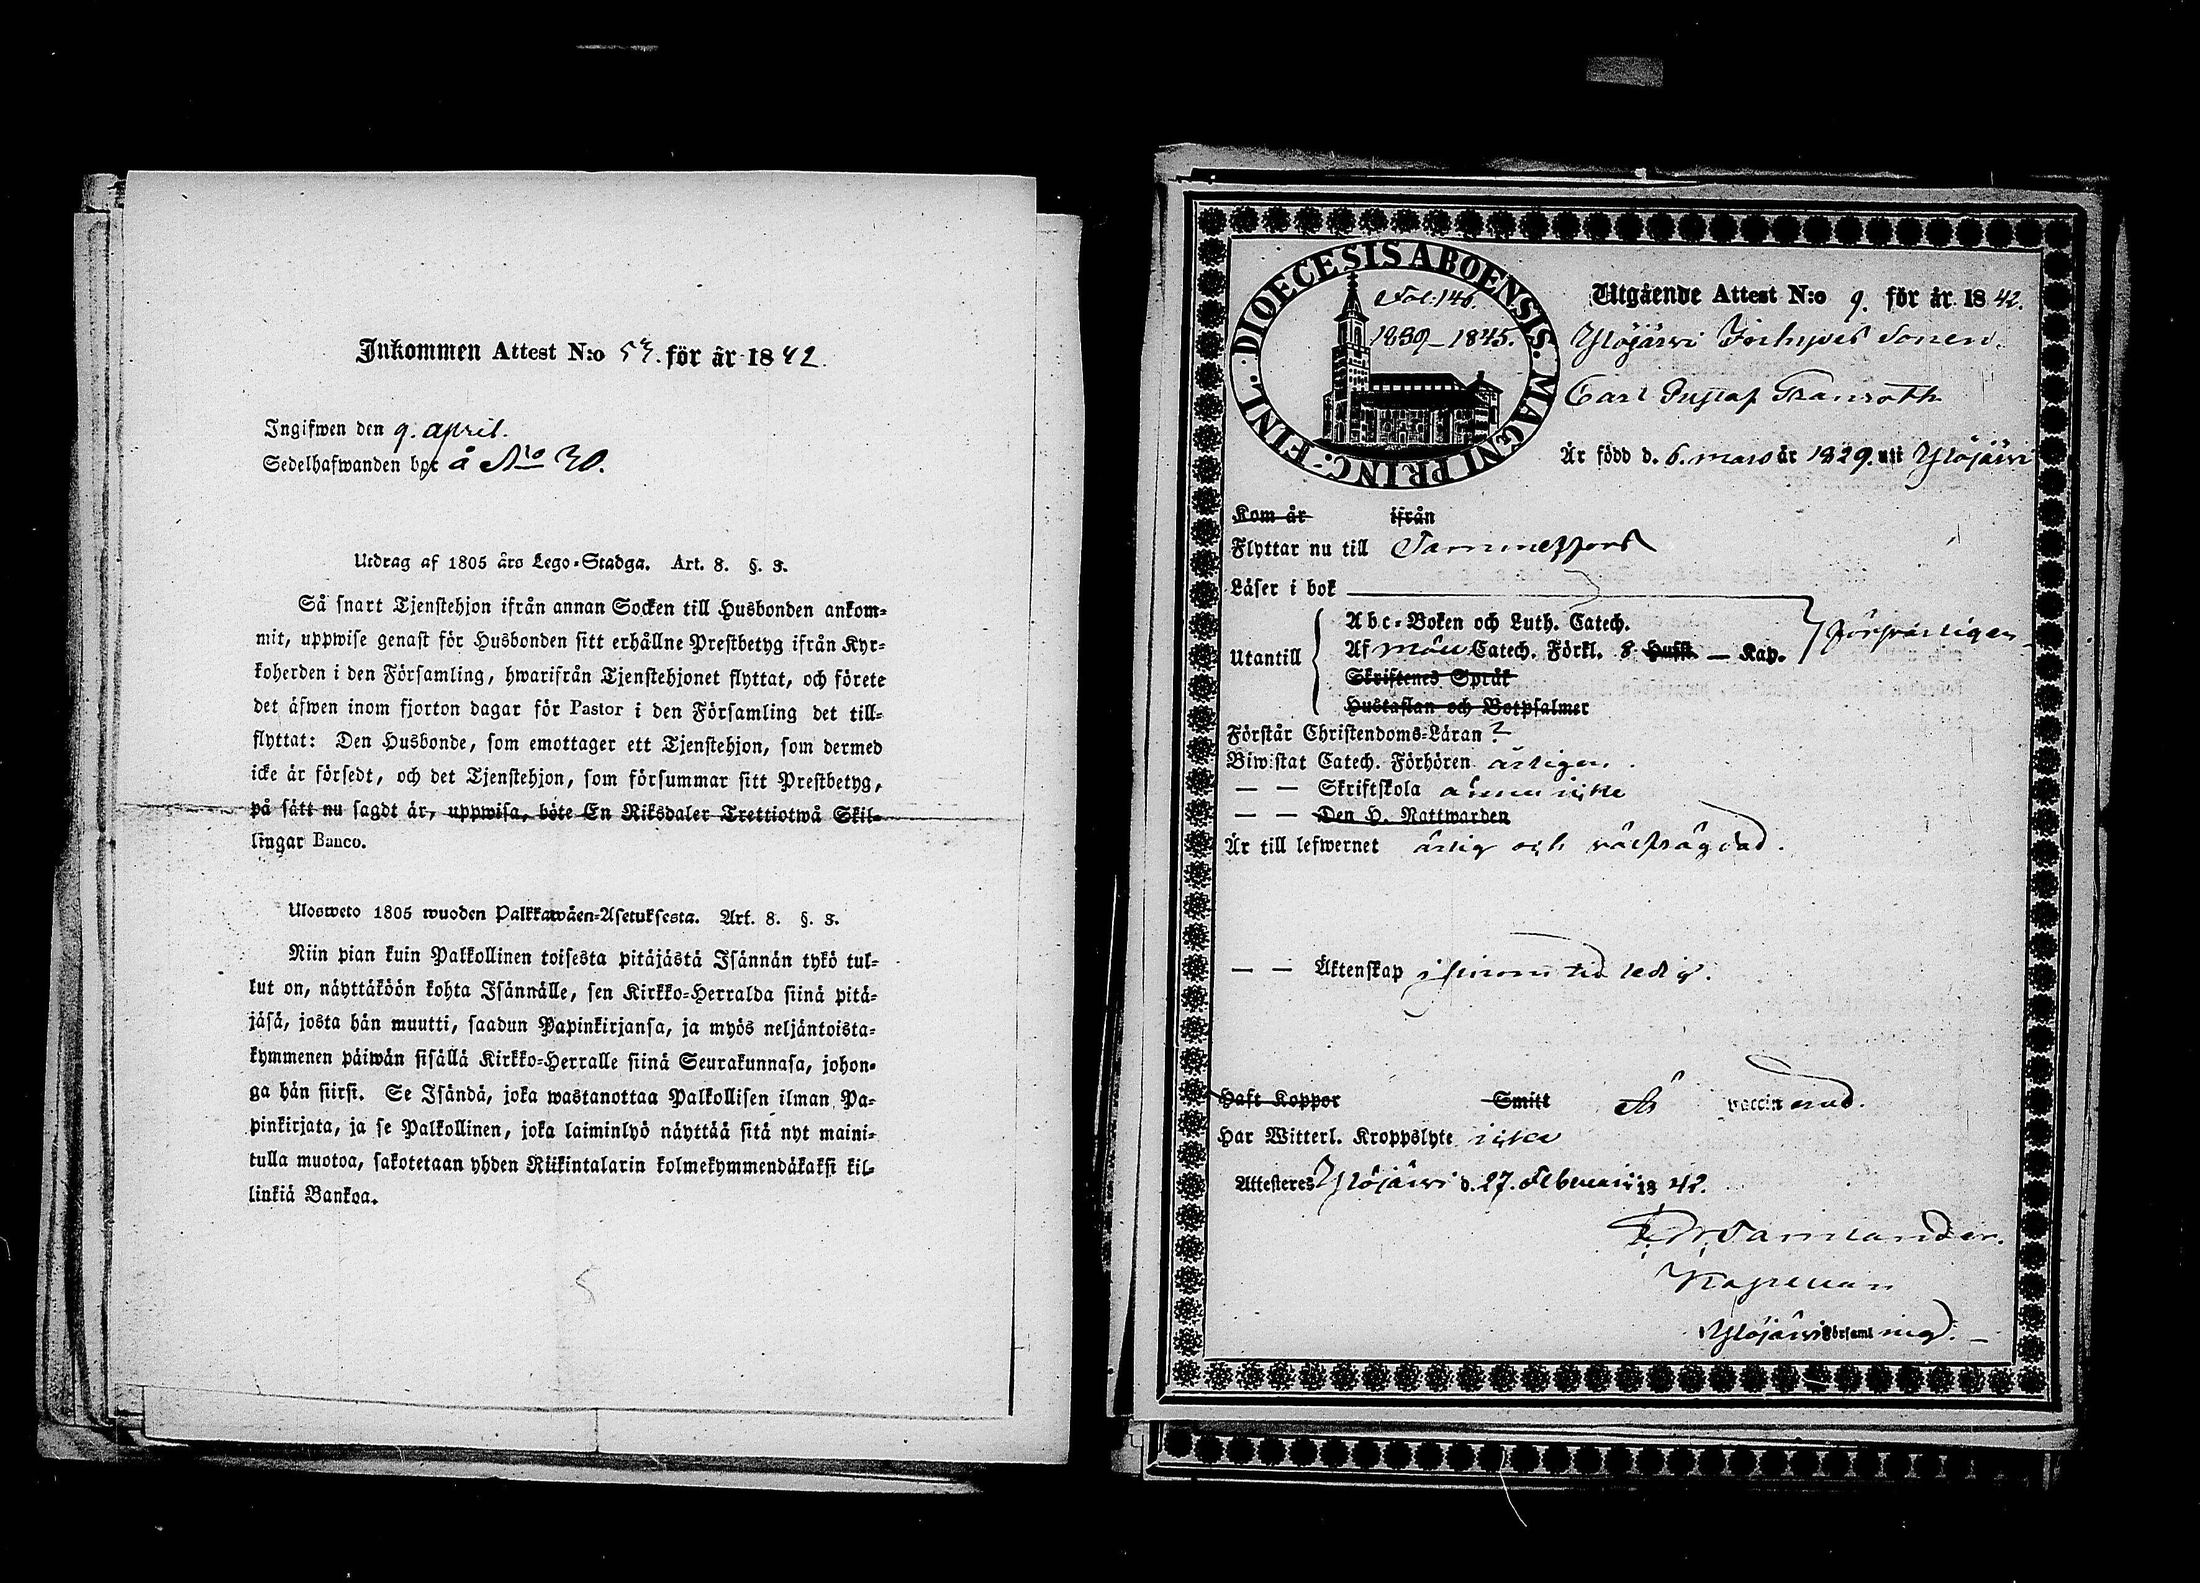 Inkommen Attest N:o 53. för år 1842.
Ingifwen den 9. april.
Sedelhafwanden bor å No 30.
Utdrag af 1805 års Lego-Stadga. Art. 8. §. 3.
Så snart Tjenstehjon ifrån annan Socken till Husbonden ankom-
mit, uppwise genast för Husbonden sitt erhållne Prestbetyg ifrån Kyr-
koherden i den Församling, hwarifrån Tjenstehjonet flyttat, och förete
det äfwen inom fjorton dagar för Pastor i den Församling det till-
flyttat: Den Husbonde, som emottager ett Tjenstehjon, som dermed
icke är försedt, och det Tjenstehjon, som försummar sitt Prestbetyg,
på sätt nu sagdt är, uppwisa, böte En Riksdaler Trettiotwå Skil-
lingar Banco.
Ulosweto 1805 wuoden Palkkawäen-Asetuksesta. Art. 8. §. 3.
Niin pian kuin Palkollinen toisesta pitäjästä Isännän tykö tul-
lut on, näyttäköön kohta Isännälle, sen Kirkko-Herralda siinä pitä-
jäsä, josta hän muutti, saadun Papinkirjansa, ja myös neljäntoista-
kymmenen päiwän sisällä Kirkko-Herralle siinä Seurakunnasa, johon-
ga hän siirsi. Se Isändä, joka wastanottaa Palkollisen ilman Pa-
pinkirjata, ja se Palkollinen, joka laiminlyö näyttää sitä nyt maini-
tulla muotoa, sakotetaan yhden Riikintalarin kolmekymmendäkaksi kil-
linkiä Bankoa.
DIOECESIS ABOENSIS. MAGNI PRINC. FINL.
Fol: 146.
1839–1845.
Utgående Attest N:o 9. för år 1842.
Ylöjärwi Sonen.
Carl Gustaf Granroth
Är född d. 6. mars år 1829. uti Ylöjärwi
Kom år ifrån
Flyttar nu till Tammerfors
Läser i bok
Abc-Boken och Luth. Catech.
Utantill Af Catech. Förkl. 8 Husst. — Kap. försvarligen
Skriftenes Språk
Hustaflan och Botpsalmer
Förstår Christendoms-Läran ?
Biwistat Catech. Förhören årligen.
— — Skriftskola ännu icke
— — Den H. Nattwarden
Är till lefwernet ärlig och välfrägdad.
— — Äktenskap ledig.
Haft Koppor Smitt Är vaccinerad.
Har Witterl. Kroppslyte icke
Attesteres Ylöjärwi d. 27. Februari 1842.
Kapellan
Ylöjärwi Församling. —